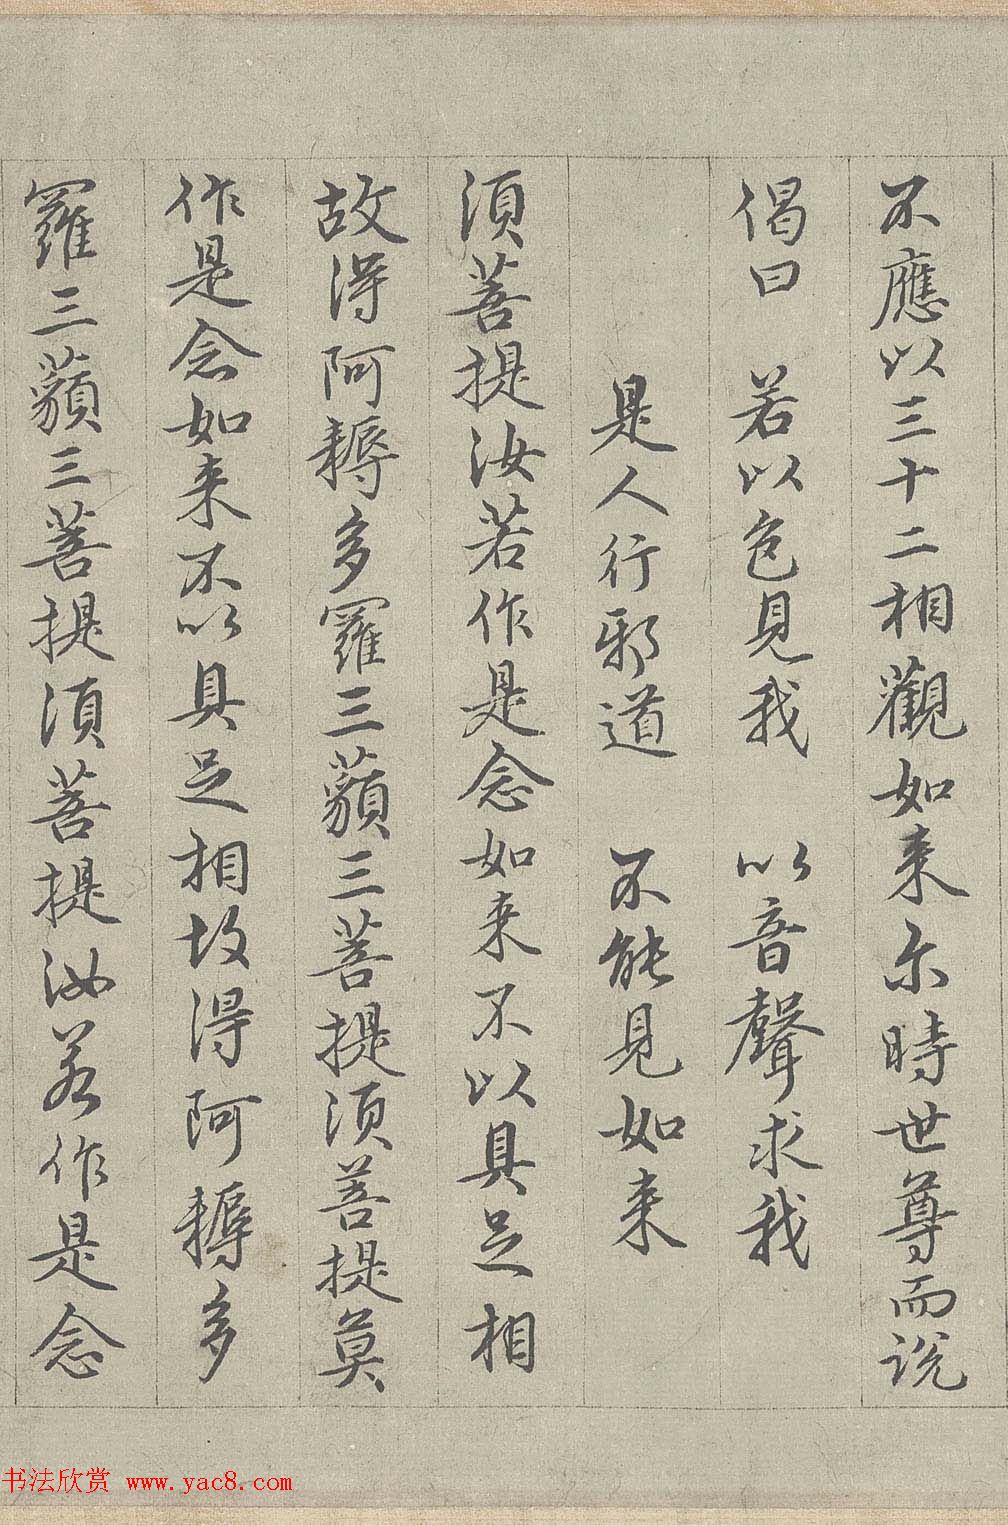 不應以三十二相觀如来尓時世尊而説
偈曰　若以色見我　以音聲求我
是人行邪道　不能見如来
須菩提汝若作是念如来不以具足相
故得阿耨多羅三藐三菩提須菩提莫
作是念如来不以具足相故得阿耨多
羅三藐三菩提須菩提汝若作是念
书法欣赏 www.yac8.com